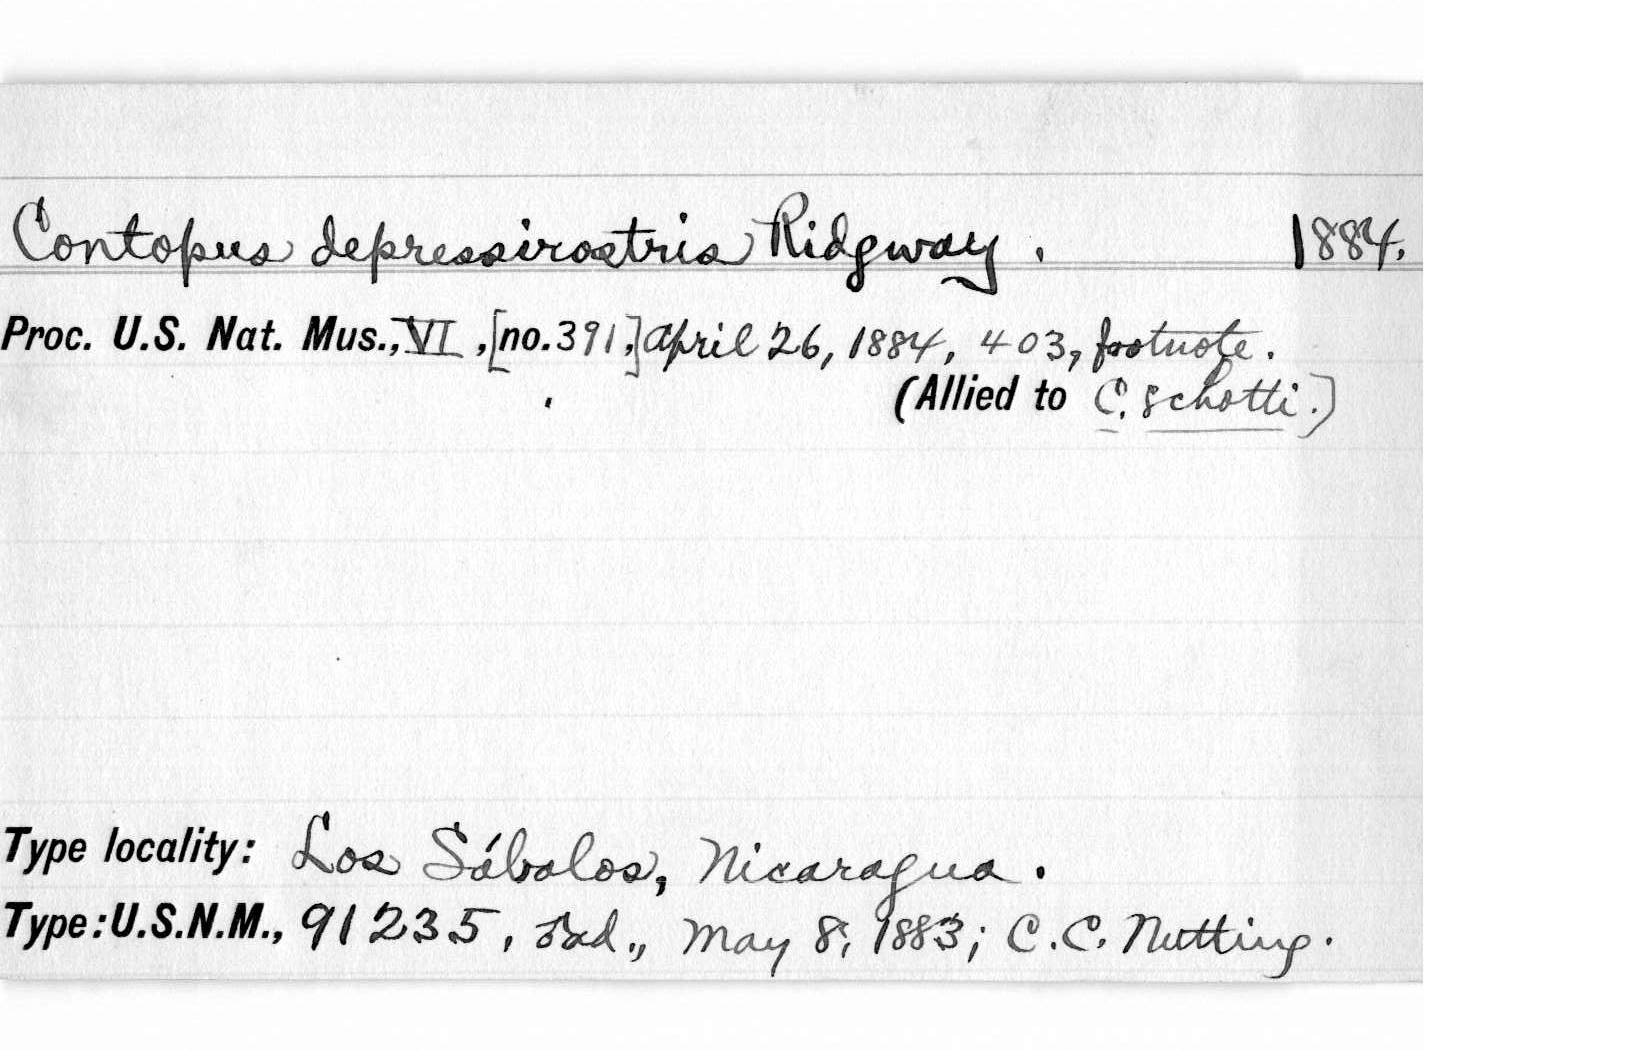 Contopus depressirostris Ridgway. 1884.
Proc. U.S. Nat. Mus., VI, [no. 391,] April 26, 1884, 403, footnote.
(Allied to C. schotti.)
Type locality: Los Sábalos, Nicaragua.
Type: U.S.N.M., 91235, ♂ad., May 8, 1883; C.C. Nutting.